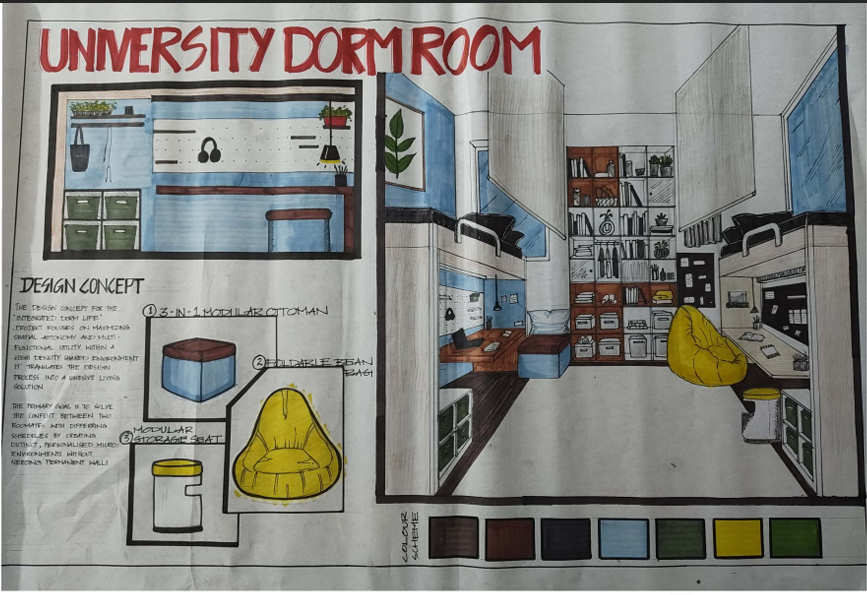 UNIVERSITY DORM ROOM
DESIGN CONCEPT
THE DESIGN CONCEPT FOR THE
"INTEGRATED DORM LIFE"
PROJECT FOCUSES ON MAXIMIZING
SPATIAL AUTONOMY AND MULTI-
FUNCTIONAL UTILITY WITHIN A
HIGH DENSITY SHARED ENVIRONMENT
IT TRANSLATES THE DESIGN
PROCESS INTO A COHESIVE LIVING
SOLUTION
THE PRIMARY GOAL IS TO SOLVE
THE CONFLICT BETWEEN TWO
ROOMATES WITH DIFFERING
SCHEDULES BY CREATING
DISTINCT, PERSONALISED MICRO-
ENVIRONMENTS WITHOUT
NEEDING PERMANENT WALLS
① 3-IN-1 MODULAR OTTOMAN
② FOLDABLE BEAN
BAG
③ MODULAR
STORAGE SEAT
COLOUR
SCHEME